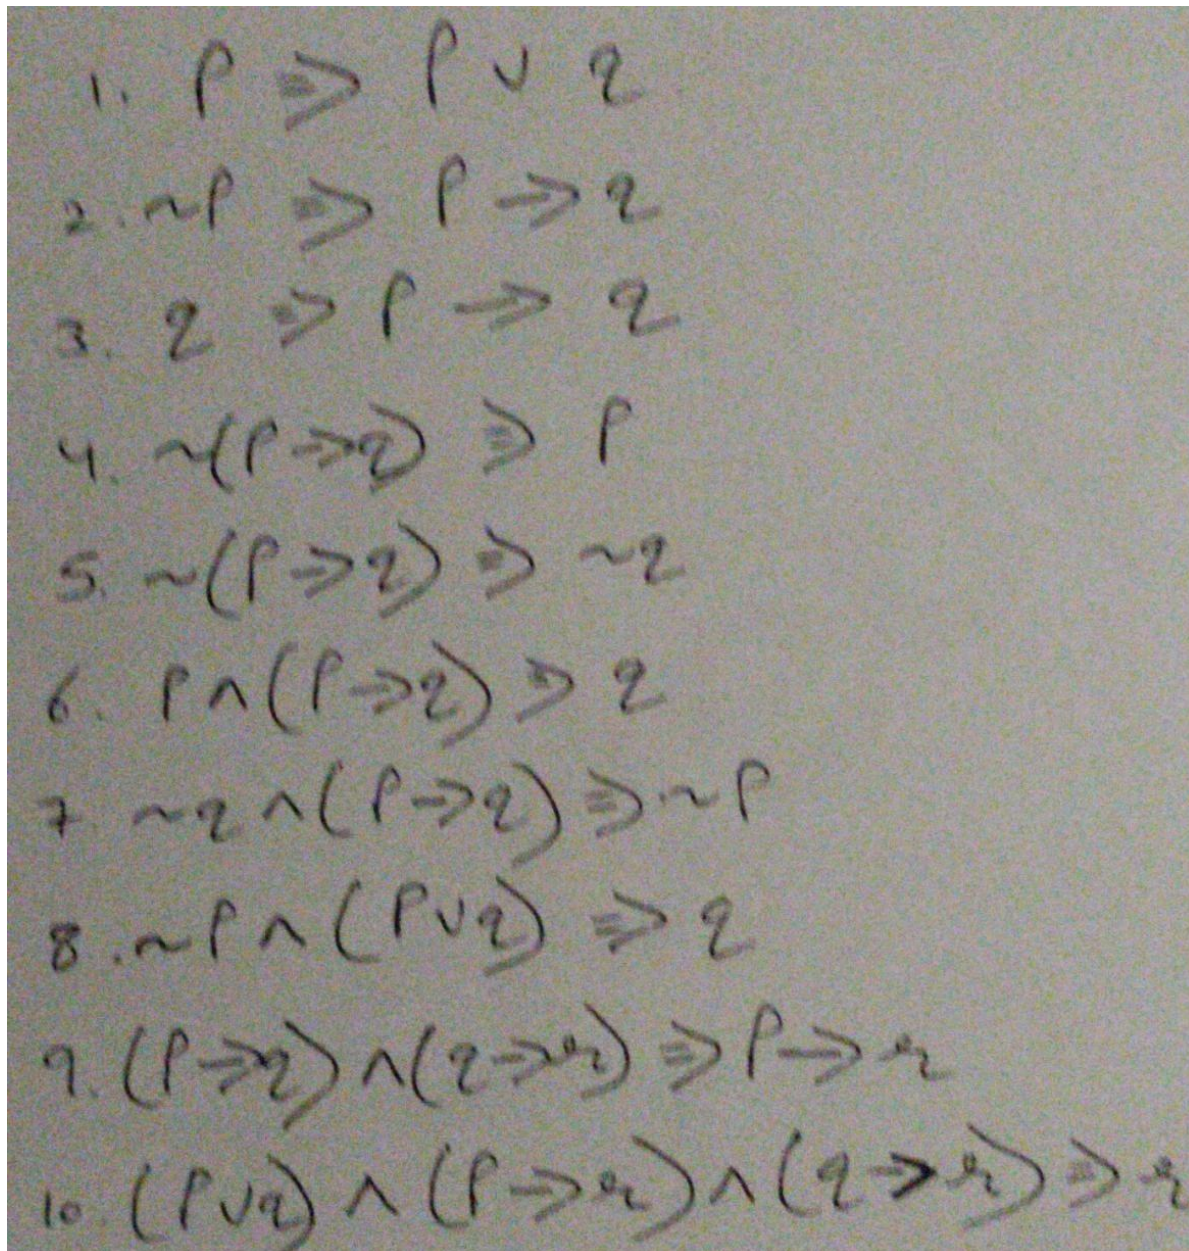 1. P ⇒ P ∨ q
2. ~P ⇒ P → q
3. q ⇒ P → q
4. ~(P → q) ⇒ P
5. ~(P → q) ⇒ ~q
6. P ∧ (P → q) ⇒ q
7. ~q ∧ (P → q) ⇒ ~P
8. ~P ∧ (P ∨ q) ⇒ q
9. (P → q) ∧ (q → r) ⇒ P → r
10. (P ∨ q) ∧ (P → r) ∧ (q → r) ⇒ r